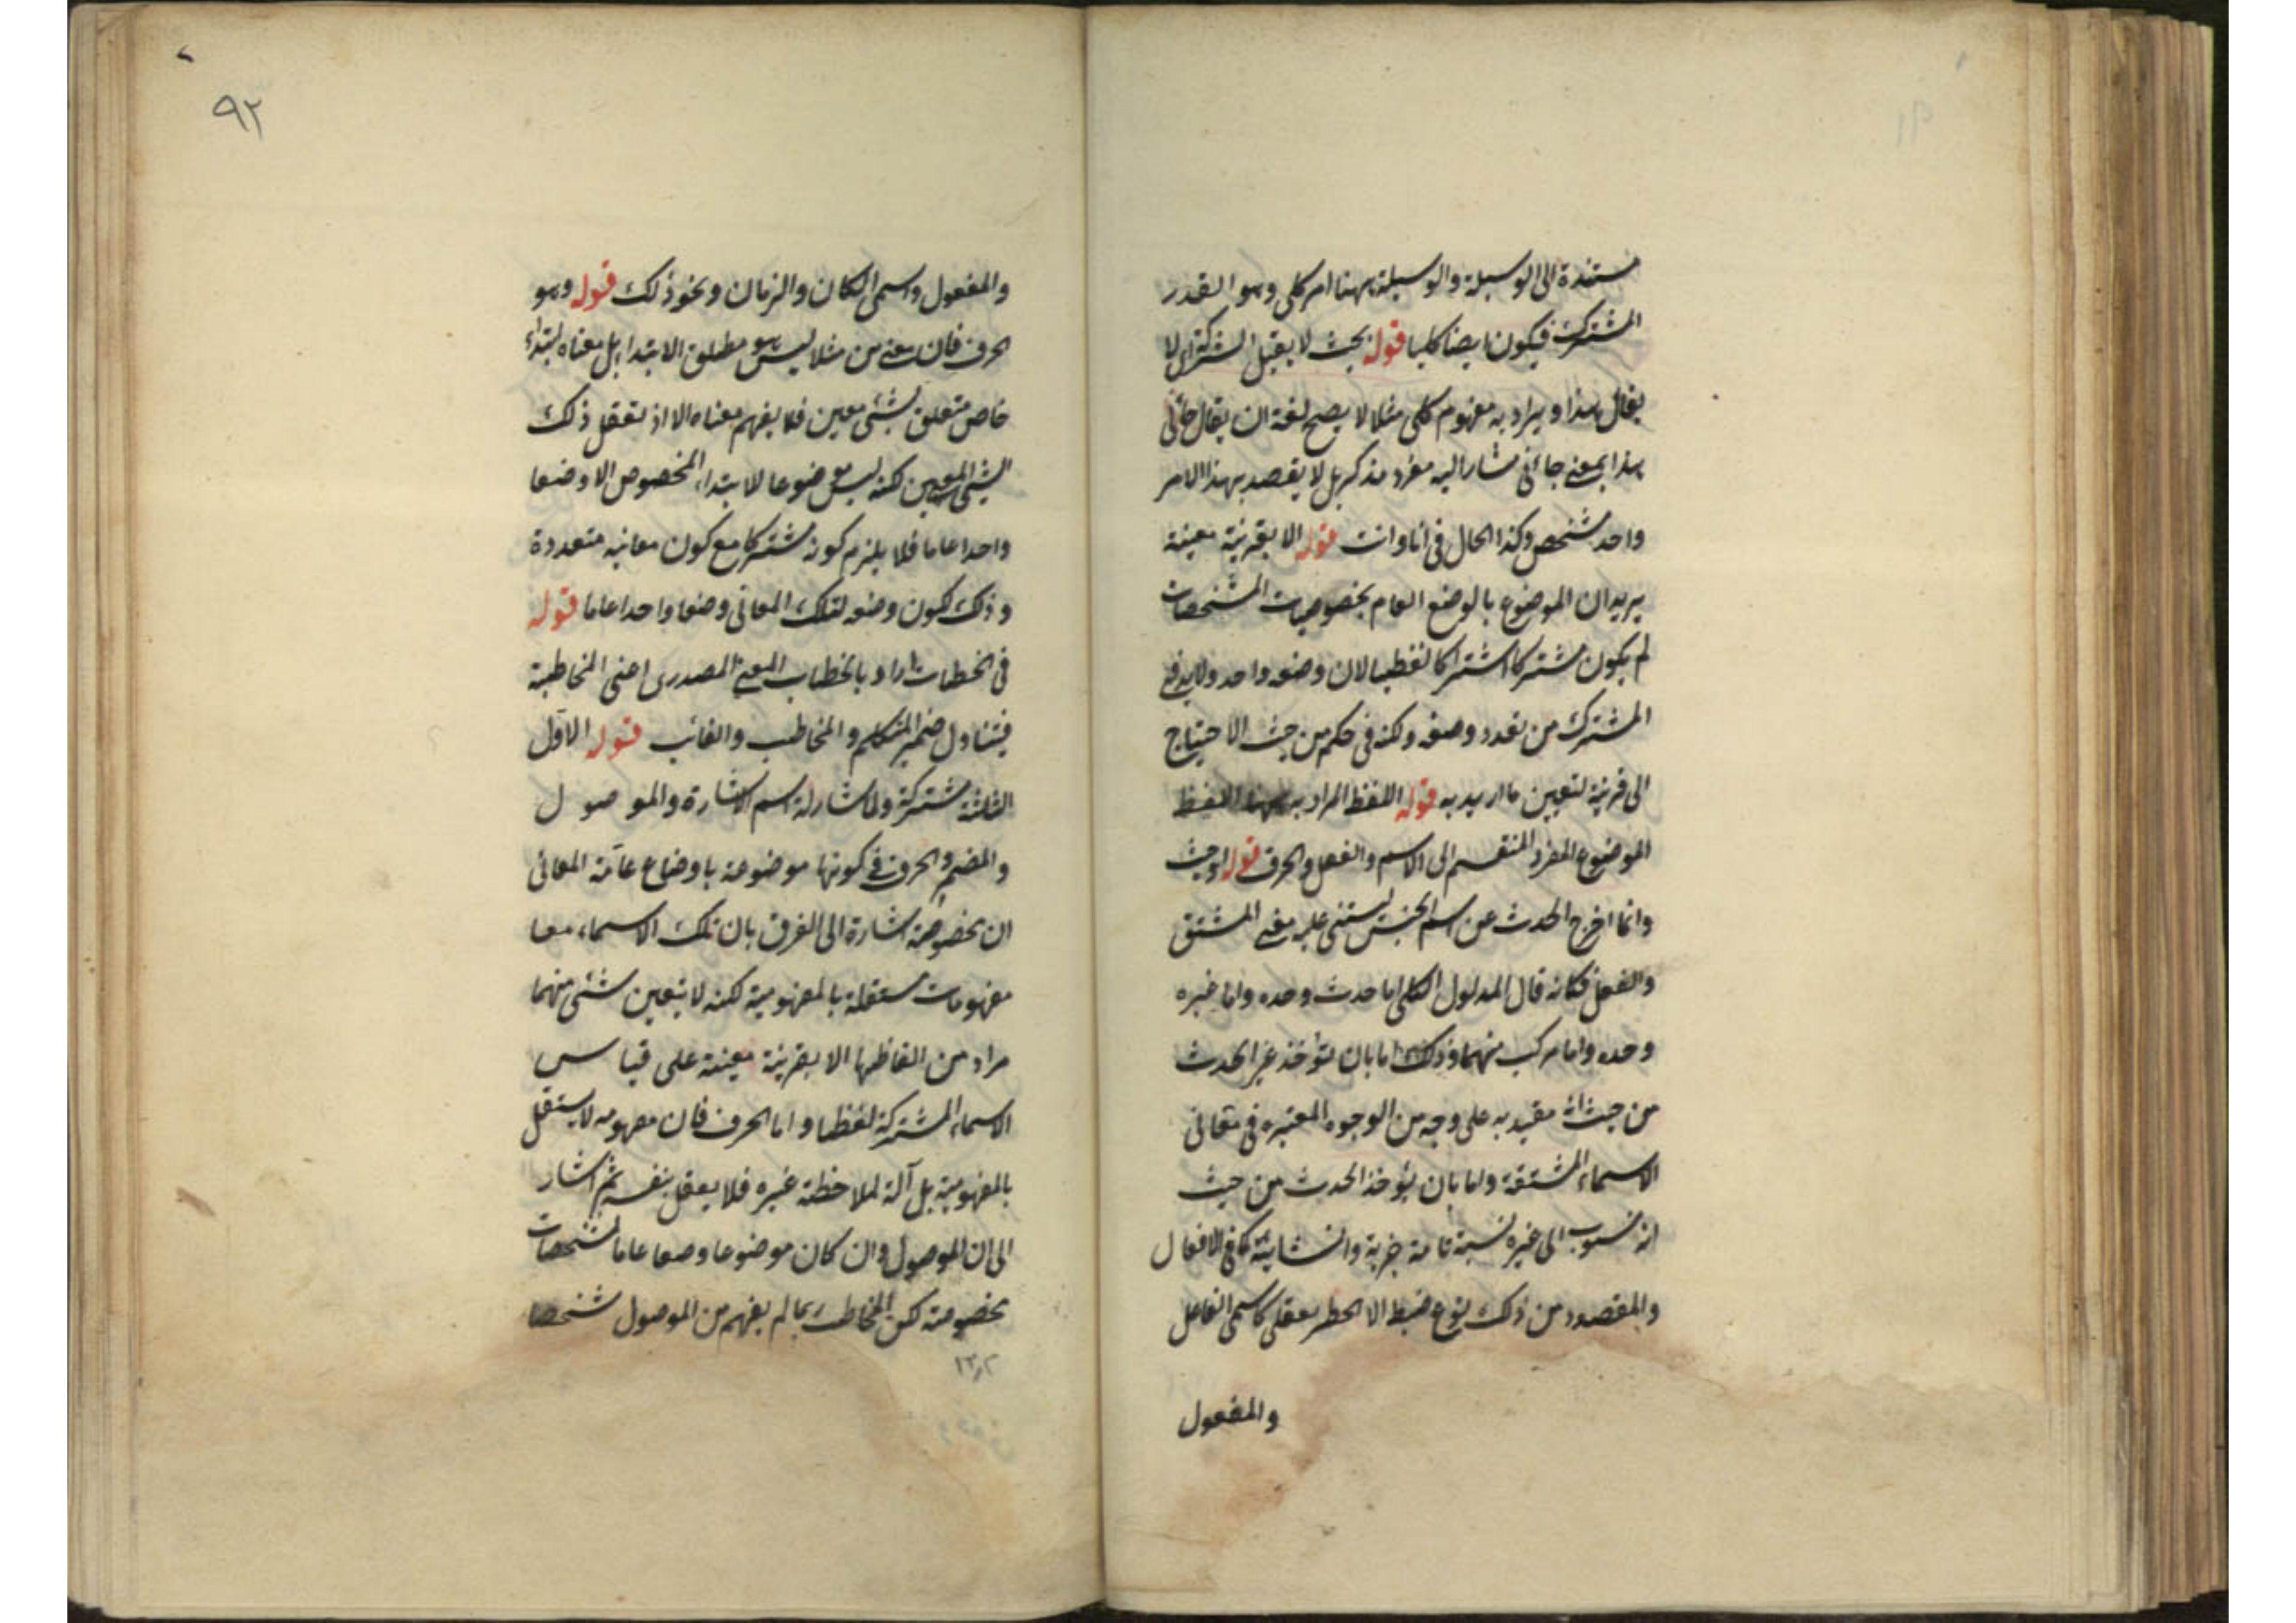 مستندة الى الوسيلة والوسيلة ههنا امر كلى وهو القدر
المشترك فيكون ايضا كليا قوله بحيث لا يقبل الشركة اى لا
يقال هذا ويراد به مفهوم كلى مثلا لا يصح لغة ان يقال جائنى
هذا بمعنى جائنى مشار اليه مفرد مذكر بل لا يقصد بهذا الا امر
واحد مشخص وكذا الحال فى انا وانت قوله الا بقرينة معينة
يريد ان الموضوع بالوضع العام بخصوصيات المشخصات
لم يكون مشتركا اشتراكا لفظيا لان وضعه واحد ولابد فى
المشترك من تعدد وضعه ولكنه فى حكمه من حيث الاحتياج
الى قرينة لتعيين ما اريد به قوله اللفظ المراد به ههنا اللفظ
الموضوع المفرد المنقسم الى الاسم والفعل والحرف قوله او حدث
وانما اخرج الحدث عن اسم الجنس ليبتنى عليه معنى المشتق
والفعل فكانه قال المدلول الكلى اما حدث وحده واما غيره
وحده واما مركب منهما وذلك اما بان يؤخذ غير الحدث
من حيث انه مقيد به على وجه من الوجوه المعتبرة فى معانى
الاسماء المشتقة واما بان يؤخذ الحدث من حيث
انه منسوب الى غيره نسبة تامة خبرية وانشائية كما فى الافعال
والمقصود من ذلك نوع ضبط لا حصر عقلى كاسمى الفاعل
والمفعول
٩٢
والمفعول واسمى المكان والزمان ونحو ذلك قوله وهو
الحرف فان معنى من مثلا ليس هو مطلق الابتداء بل معناه ابتداء
خاص متعلق بشئ معين فلا يفهم معناه الا اذ تعقل ذلك
الشئ المعين لكنه ليس موضوعا للابتداء المخصوص الا وضعا
واحدا عاما فلا يلزم كونه مشتركا مع كون معانيه متعددة
وذلك لكون وضعه لتلك المعانى وضعا واحدا عاما قوله
فى الخطاب اراد بالخطاب المعنى المصدرى اعنى المخاطبة
فيتناول ضمير المتكلم والمخاطب والغائب قوله الاول
الثلثة مشتركة ولما شارك اسم الاشارة والموصول
والمضمر والحرف فى كونها موضوعة باوضاع عامة المعانى
ان بخصوصة اشارة الى الفرق بان تلك الاسماء معا
مفهومات مستقلة بالمفهومية لكنه لا يتعين شئ منهما
مراد من الفاظها الا بقرينة معينة على قياس
الاسماء المشتركة لفظا واما الحرف فان مفهومه لا يستقل
بالمفهومية بل آلة لملاحظة غيره فلا يعقل بنفسه ثم اشار
الى ان الموصول وان كان موضوعا وضعا عاما لمشخصات
بخصوصه لكن المخاطب ربما لم يفهم من الموصول شخصا